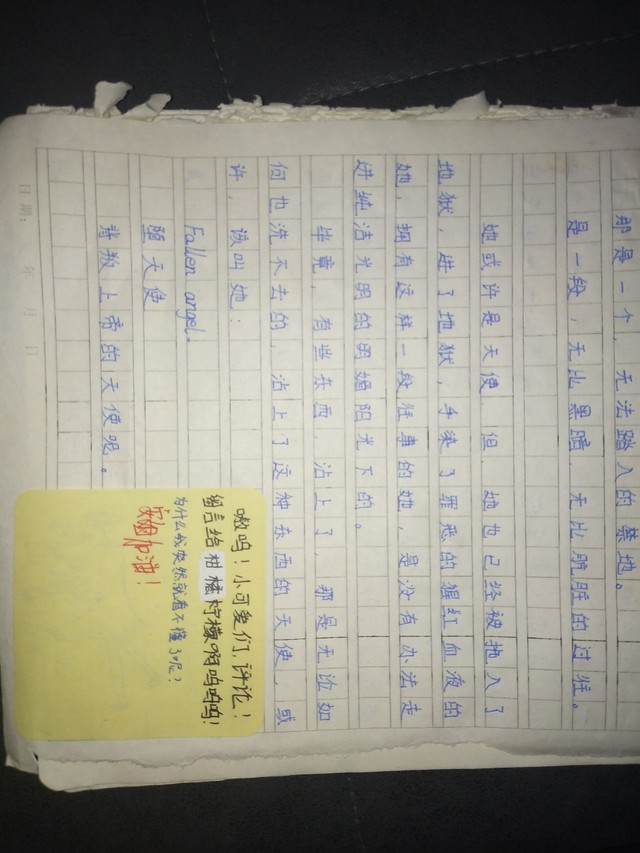 那是一个，无法踏入的禁地。
是一段，无比黑暗，无比肮脏的过往。
她或许是天使，但，她也已经被拖入了
地狱，进了地狱，手染了罪恶的猩红血液的
她，拥有这样一段往事的她，是没有办法走
进纯洁光明的明媚阳光下的。
毕竟，有些东西，沾上了，那是无论如
何也洗不去的，沾上了这种东西的天使，或
许，该叫她：
Fallen angel.
堕天使
背叛上帝的天使呢。
日期： 年 月 日
嗷呜！小可爱们，评论！
留言给柑橘柠檬啊呜呜呜！
为什么我突然就看不懂了呢？
加油！